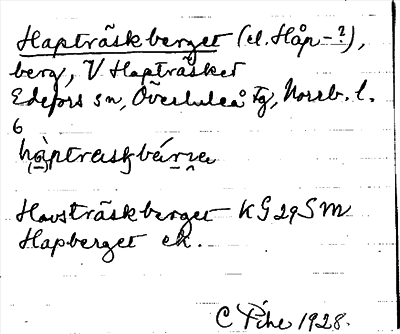 Hapträskberget (el. Håp-?),
berg, V Hapträsket
Edefors sn, Överluleå tg, Norrb. l.
6
Havsträskberget KG 29 SM
Hapberget ek.
C Pihe 1928.